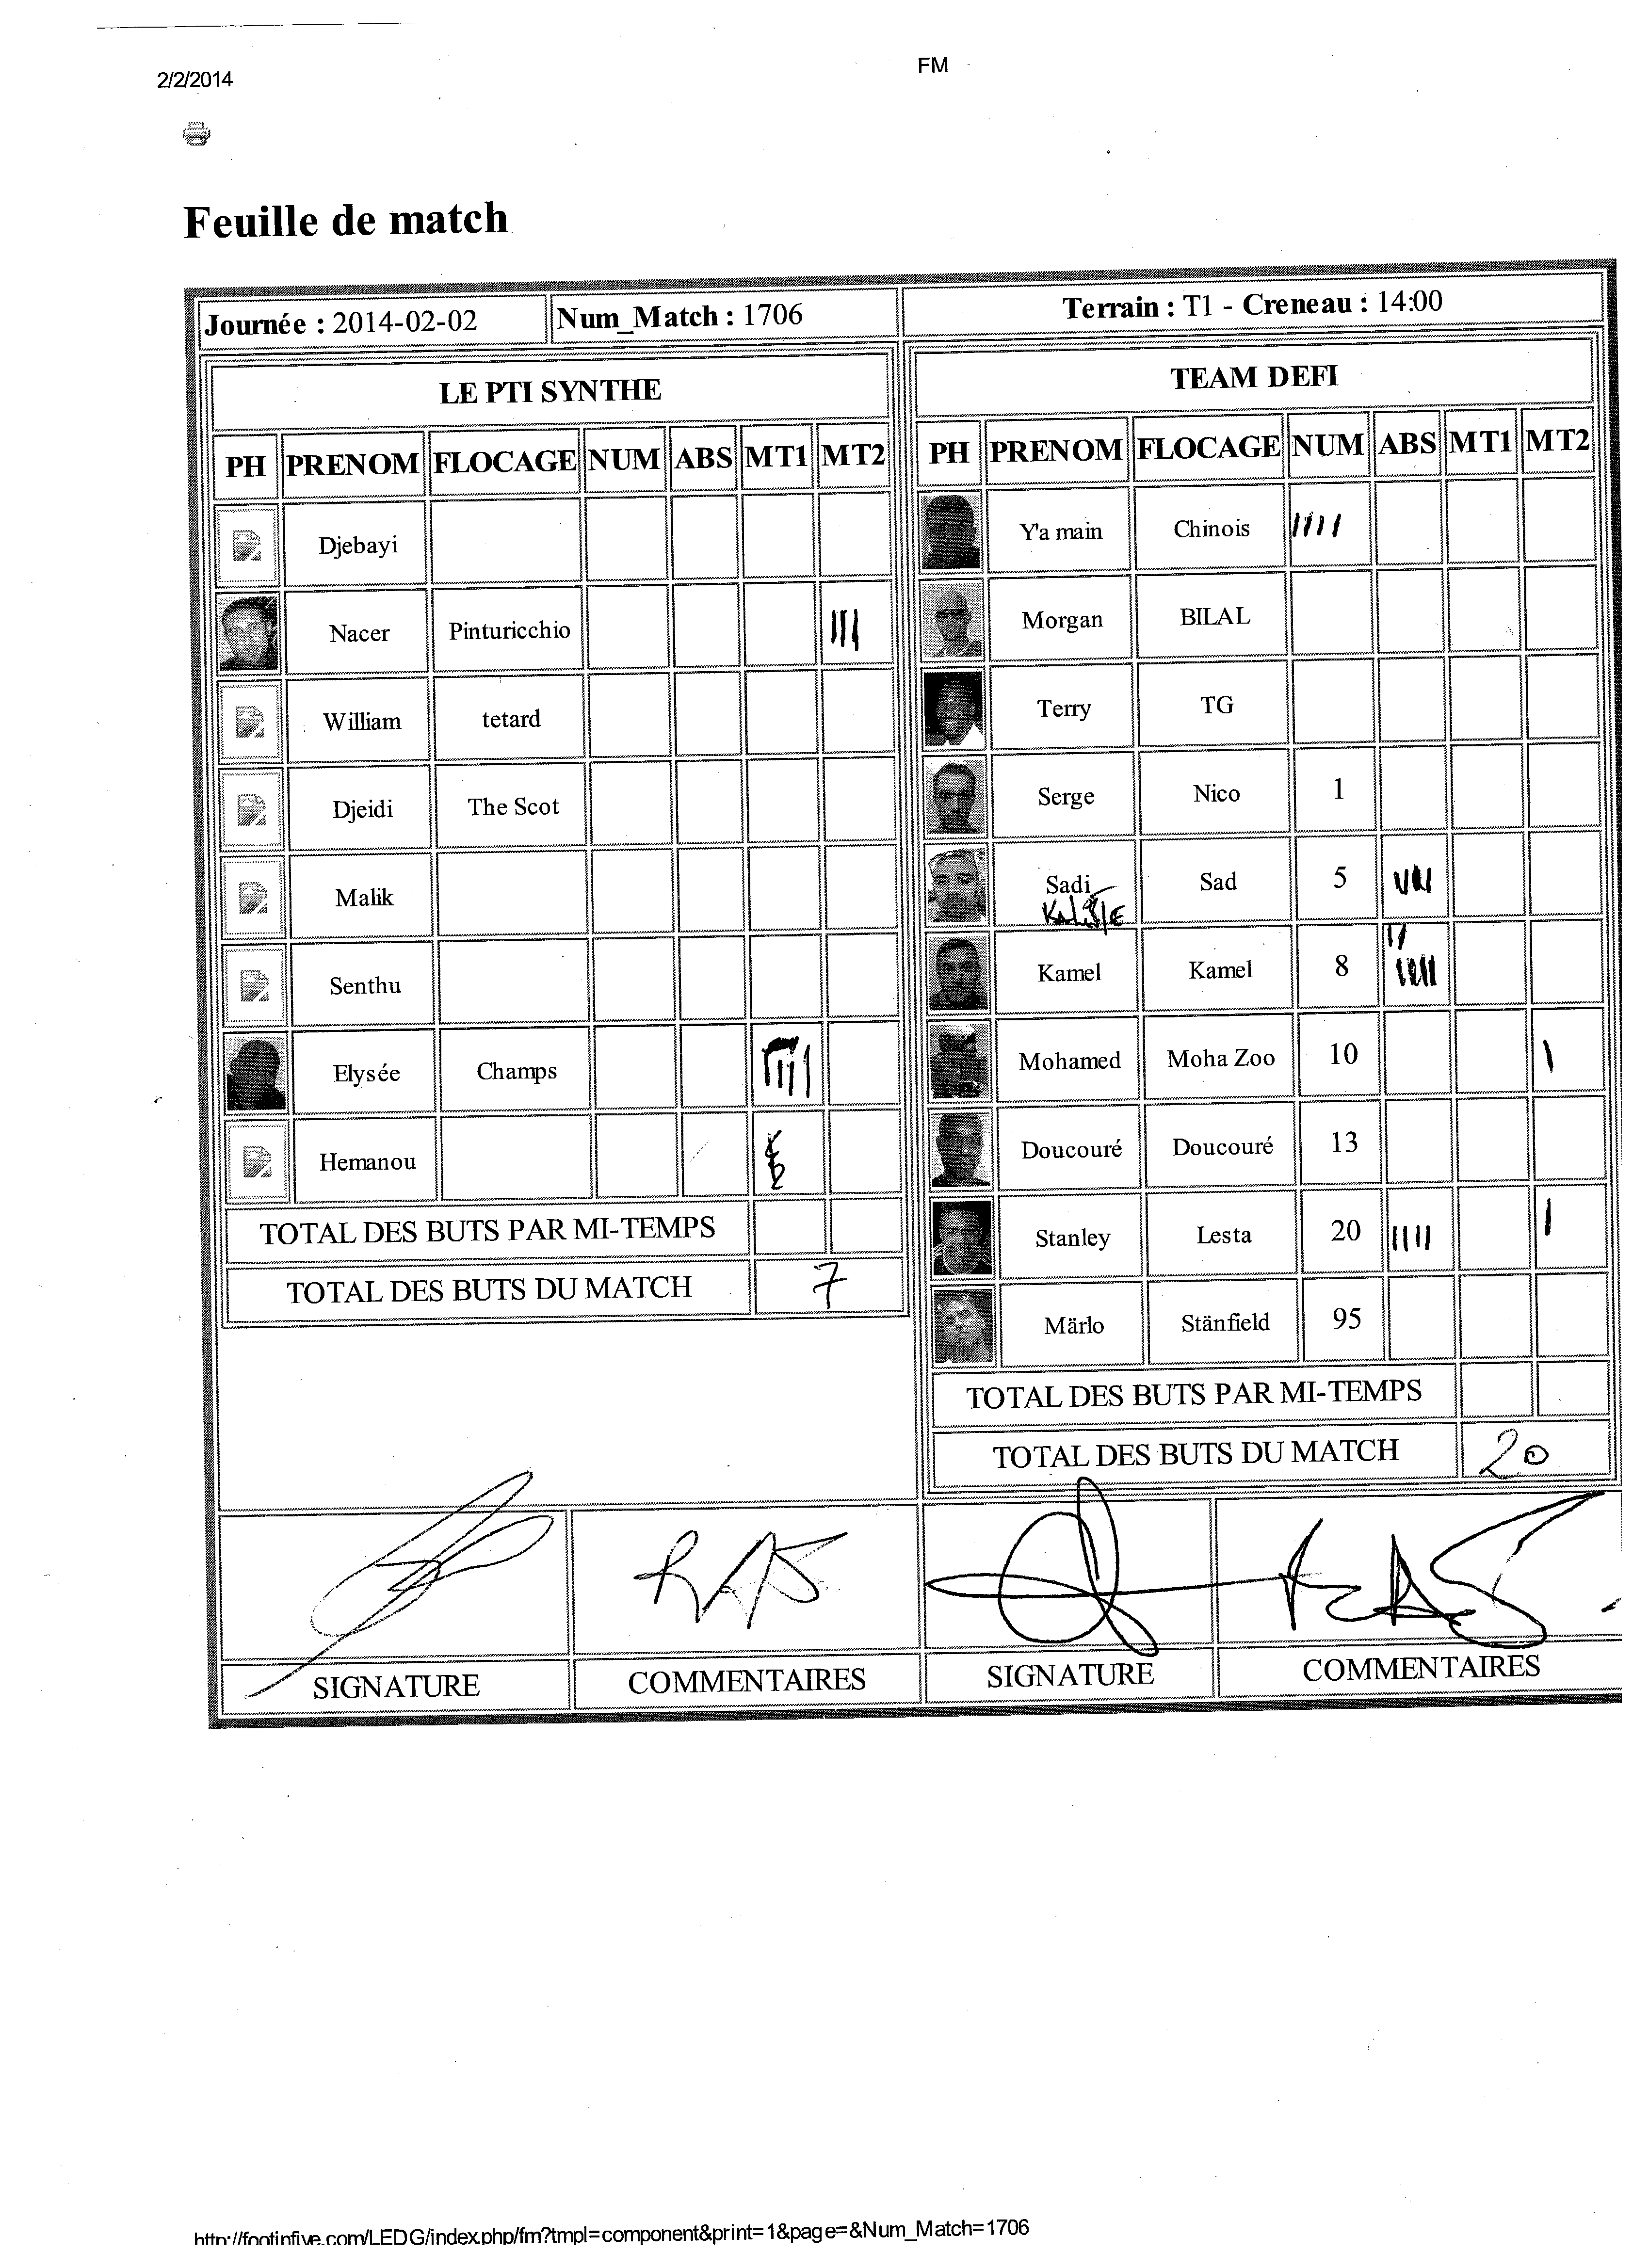 2/2/2014
FM
Feuille de match
Journée : 2014-02-02 Num_Match : 1706 Terrain : T1 - Creneau : 14:00
LE PTI SYNTHE
PH PRENOM FLOCAGE NUM ABS MT1 MT2
Djebayi
Nacer Pinturicchio
William tetard
Djeidi The Scot
Malik
Senthu
Elysée Champs
Hemanou
TOTAL DES BUTS PAR MI-TEMPS
TOTAL DES BUTS DU MATCH 7
TEAM DEFI
PH PRENOM FLOCAGE NUM ABS MT1 MT2
Y'a main Chinois
Morgan BILAL
Terry TG
Serge Nico 1
Sadi Sad 5
Kamel Kamel 8
Mohamed Moha Zoo 10
Doucouré Doucouré 13
Stanley Lesta 20
Märlo Stänfield 95
TOTAL DES BUTS PAR MI-TEMPS
TOTAL DES BUTS DU MATCH 20
RAS
RAS
SIGNATURE COMMENTAIRES SIGNATURE COMMENTAIRES
http://footinfive.com/LEDG/index.php/fm?tmpl=component&print=1&page=&Num_Match=1706